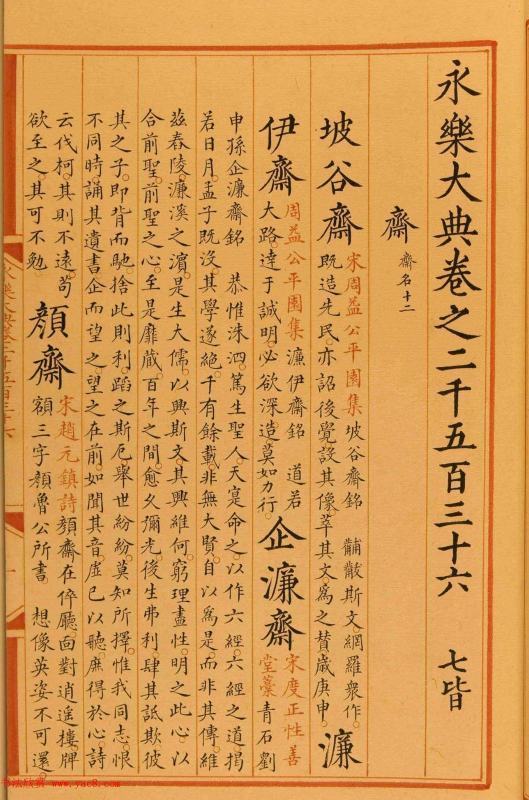 永樂大典卷之二千五百三十六 七皆
齋 齋名十二
坡谷齋 宋周益公平園集坡谷齋銘 黼黻斯文網羅衆作
既造先民亦詔後覺設其像萃其文為之賛歲庚申 濂
伊齋 周益公平園集濂伊齋銘 道若
大路達于誠明必欲深造莫如力行 企濂齋 宋度正性善
堂藁青石劉
申孫企濂齋銘 恭惟洙泗篤生聖人天寔命之以作六經六經之道揭
若日月孟子既沒其學遂絕千有餘載非無大賢自以爲是而非其傳維
玆舂陵濂溪之濵是生大儒以興斯文其興維何窮理盡性明之此心以
合前聖前聖之心至是靡蔵百年之間愈久彌光後生弗利肆其詆欺彼
其之子即背而馳捨此則利蹈之斯厄舉世紛紛莫知所擇惟我同志恨
不同時誦其遺書企而望之望之在前如聞其音虛已以聽庶得於心詩
云伐柯其則不遠苟
欲至之其可不勉 顔齋 宋趙元鎮詩顔齋在倅廳面對逍遥樓牌
額三字顔魯公所書 想像英姿不可還
书法欣赏 www.yac8.com